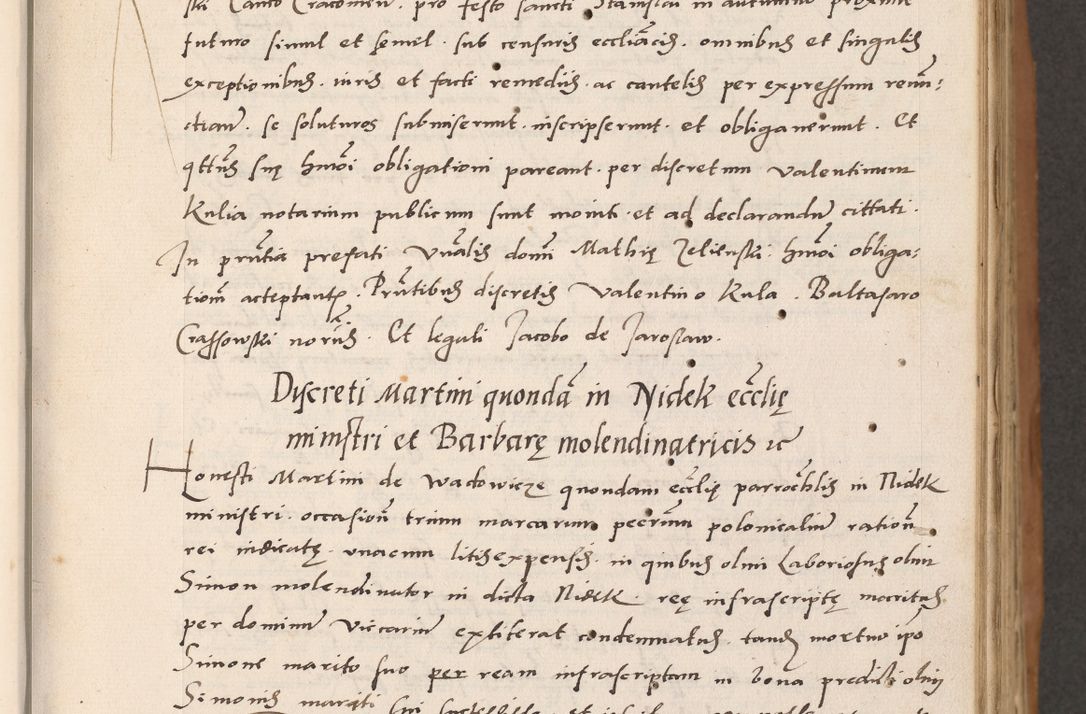 ski Canto Cracomen. pro festo sancti Stanislai in autumno proxime
futuro simul et semel. sub censuris eccliacis. omnibus et singulis
exceptionibus. iuris et facti remediis. ac cautelis per expressum renun:
ctian. se soluturos submiserunt. inscripserunt. et obligauerunt. Et
qttus suę hmoi obligationi pareant. per discretum Valentinum
Kulia notarium publicum sunt moniti. et ad declarandum cittati.
In pntia prefati Vnalis domi Mathię Zelienski. hmoi obliga:
tiom acceptantis. Pntibus discretis Valentino Kula. Baltasaro
Crassowski noriis. Et leguli Jacobo de Jaroslaw.
Discreti Martini quondā in Nidek ecclię
ministri et Barbarę molendinatricis
Honesti Martini de Wadowicze quondam ecclię parrochlis in Nidek
ministri. occasion trium marcarum pecnm polonicalium ration
rei indicatę. vnacum litis expensis. in quibus olim Laboriosus olim
Simon molendinator in dicta Nidek. reę infrascriptę maritus
per dominum Viccarium extiterat condemnatus. tand mortuo ipo
Simone marito suo per ream infrascriptam in bona predicti olim
Simonis mariti sui